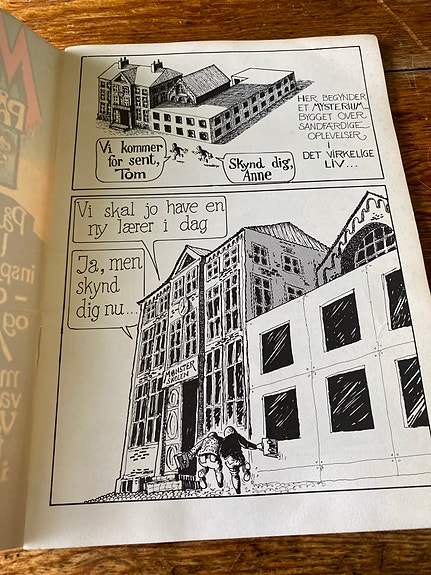 HER BEGYNDER
ET MYSTERIUM
BYGGET OVER
SANDFÆRDIGE
OPLEVELSER,
I
DET VIRKELIGE
LIV...
Vi kommer
for sent,
Tom
Skynd dig,
Anne
Vi skal jo have en
ny lærer i dag
Ja, men
skynd
dig nu...
MØNSTER
SKOLEN
M
PÅ
På
insp
og
m
va
V
i